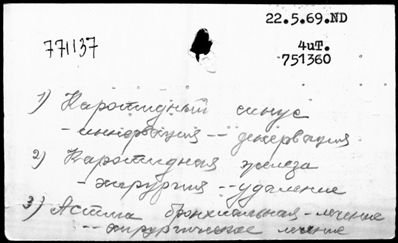 22.5.69.ND
771137
4иТ.
751360
1) Каротидный синус
- иннервация -- денервация
2) Каротидная железа
- хирургия -- удаление
3) Астма бронхиальная - лечение
-- хирургическое лечение